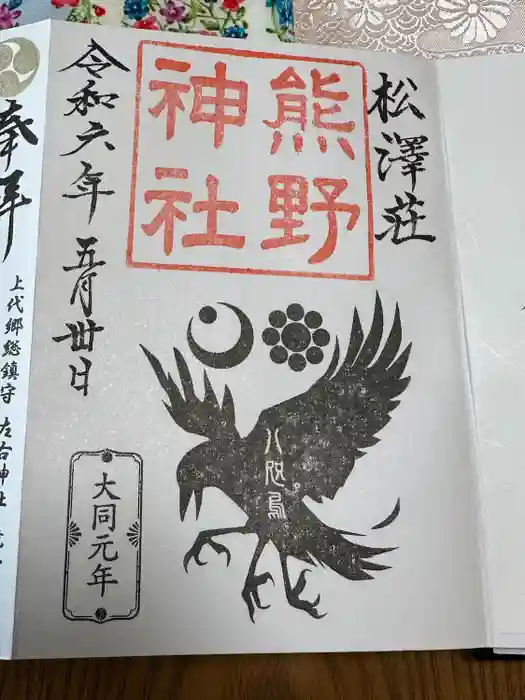 松澤荘
熊野
神社
八咫烏
令和六年 五月卅日
大同元年
奉拝
上代郷総鎮守 左右神社